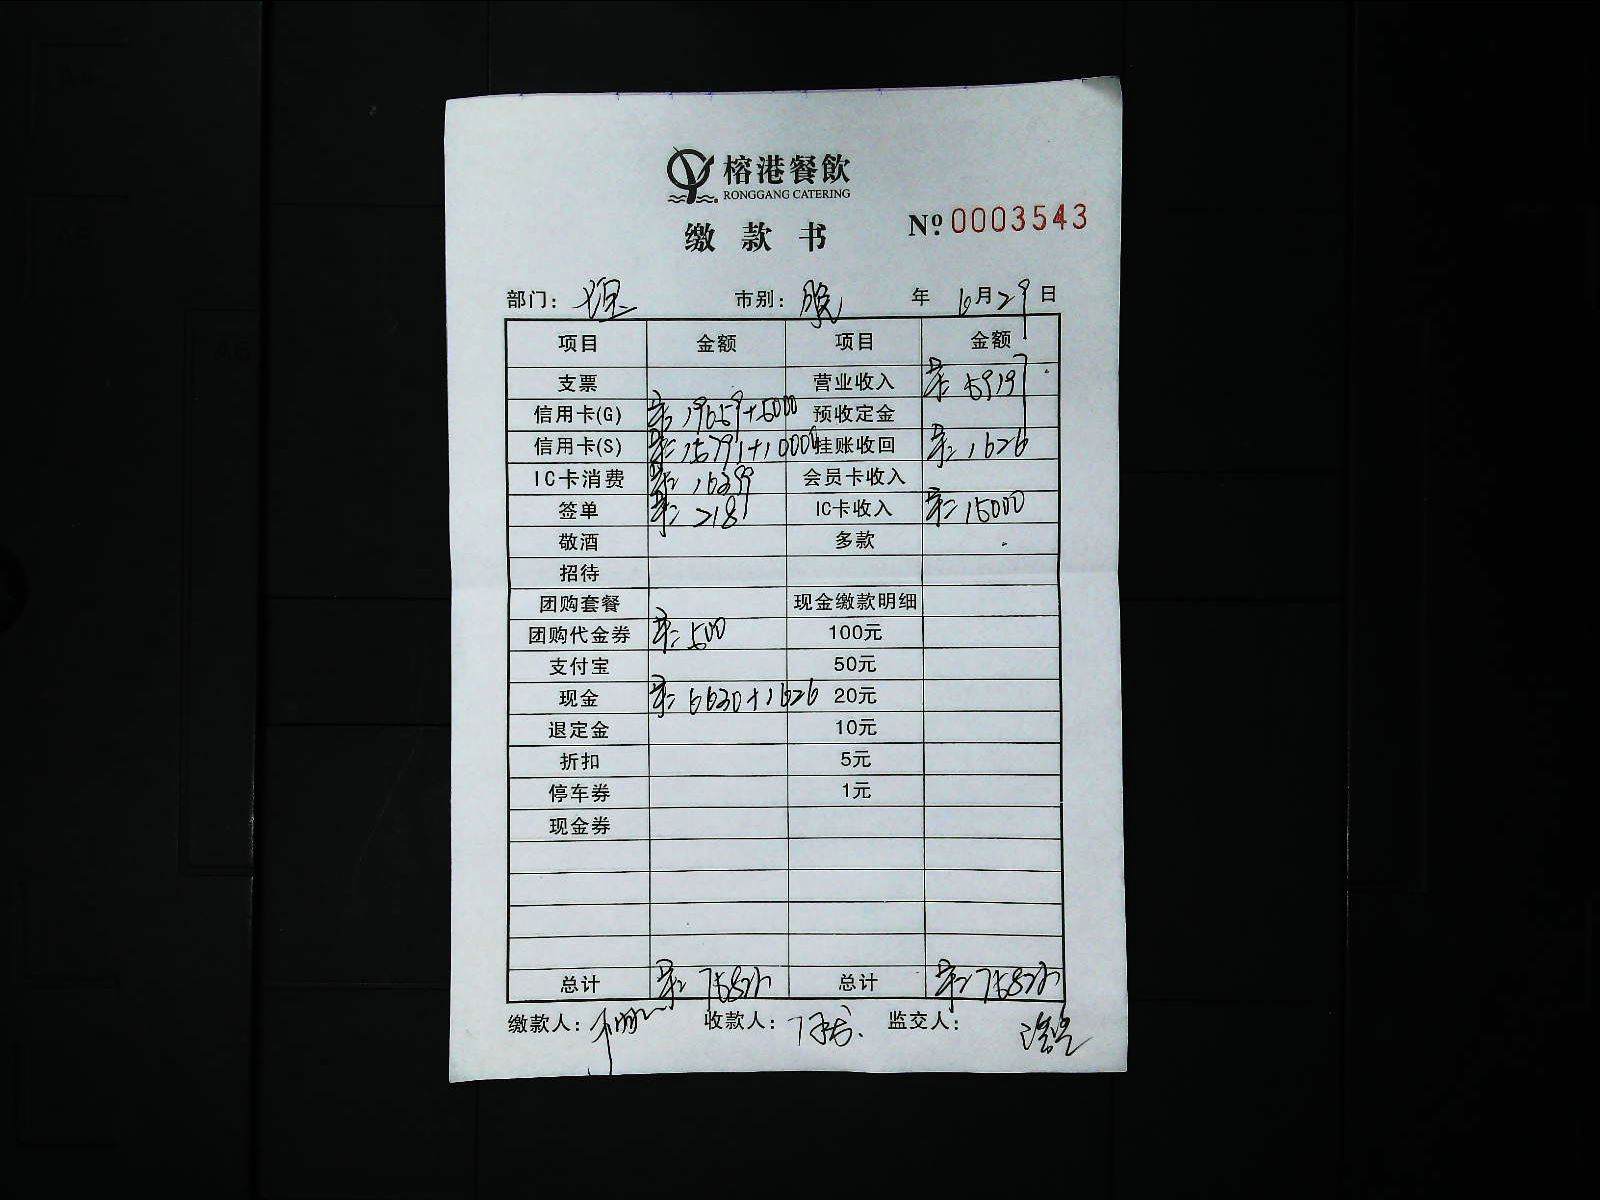 榕港餐飲
RONGGANG CATERING
缴款书 Nº 0003543
部门： 市别： 年 10月29日
项目 金额 项目 金额
支票 营业收入 59197
信用卡(G) 19659+5000 预收定金
信用卡(S) 15791+10000 挂账收回 1626
IC卡消费 会员卡收入
签单 2181 IC卡收入 15000
敬酒 多款
招待
团购套餐 现金缴款明细
团购代金券 500 100元
支付宝 50元
现金 20元
退定金 10元
折扣 5元
停车券 1元
现金券
总计 总计
缴款人： 收款人： 监交人：